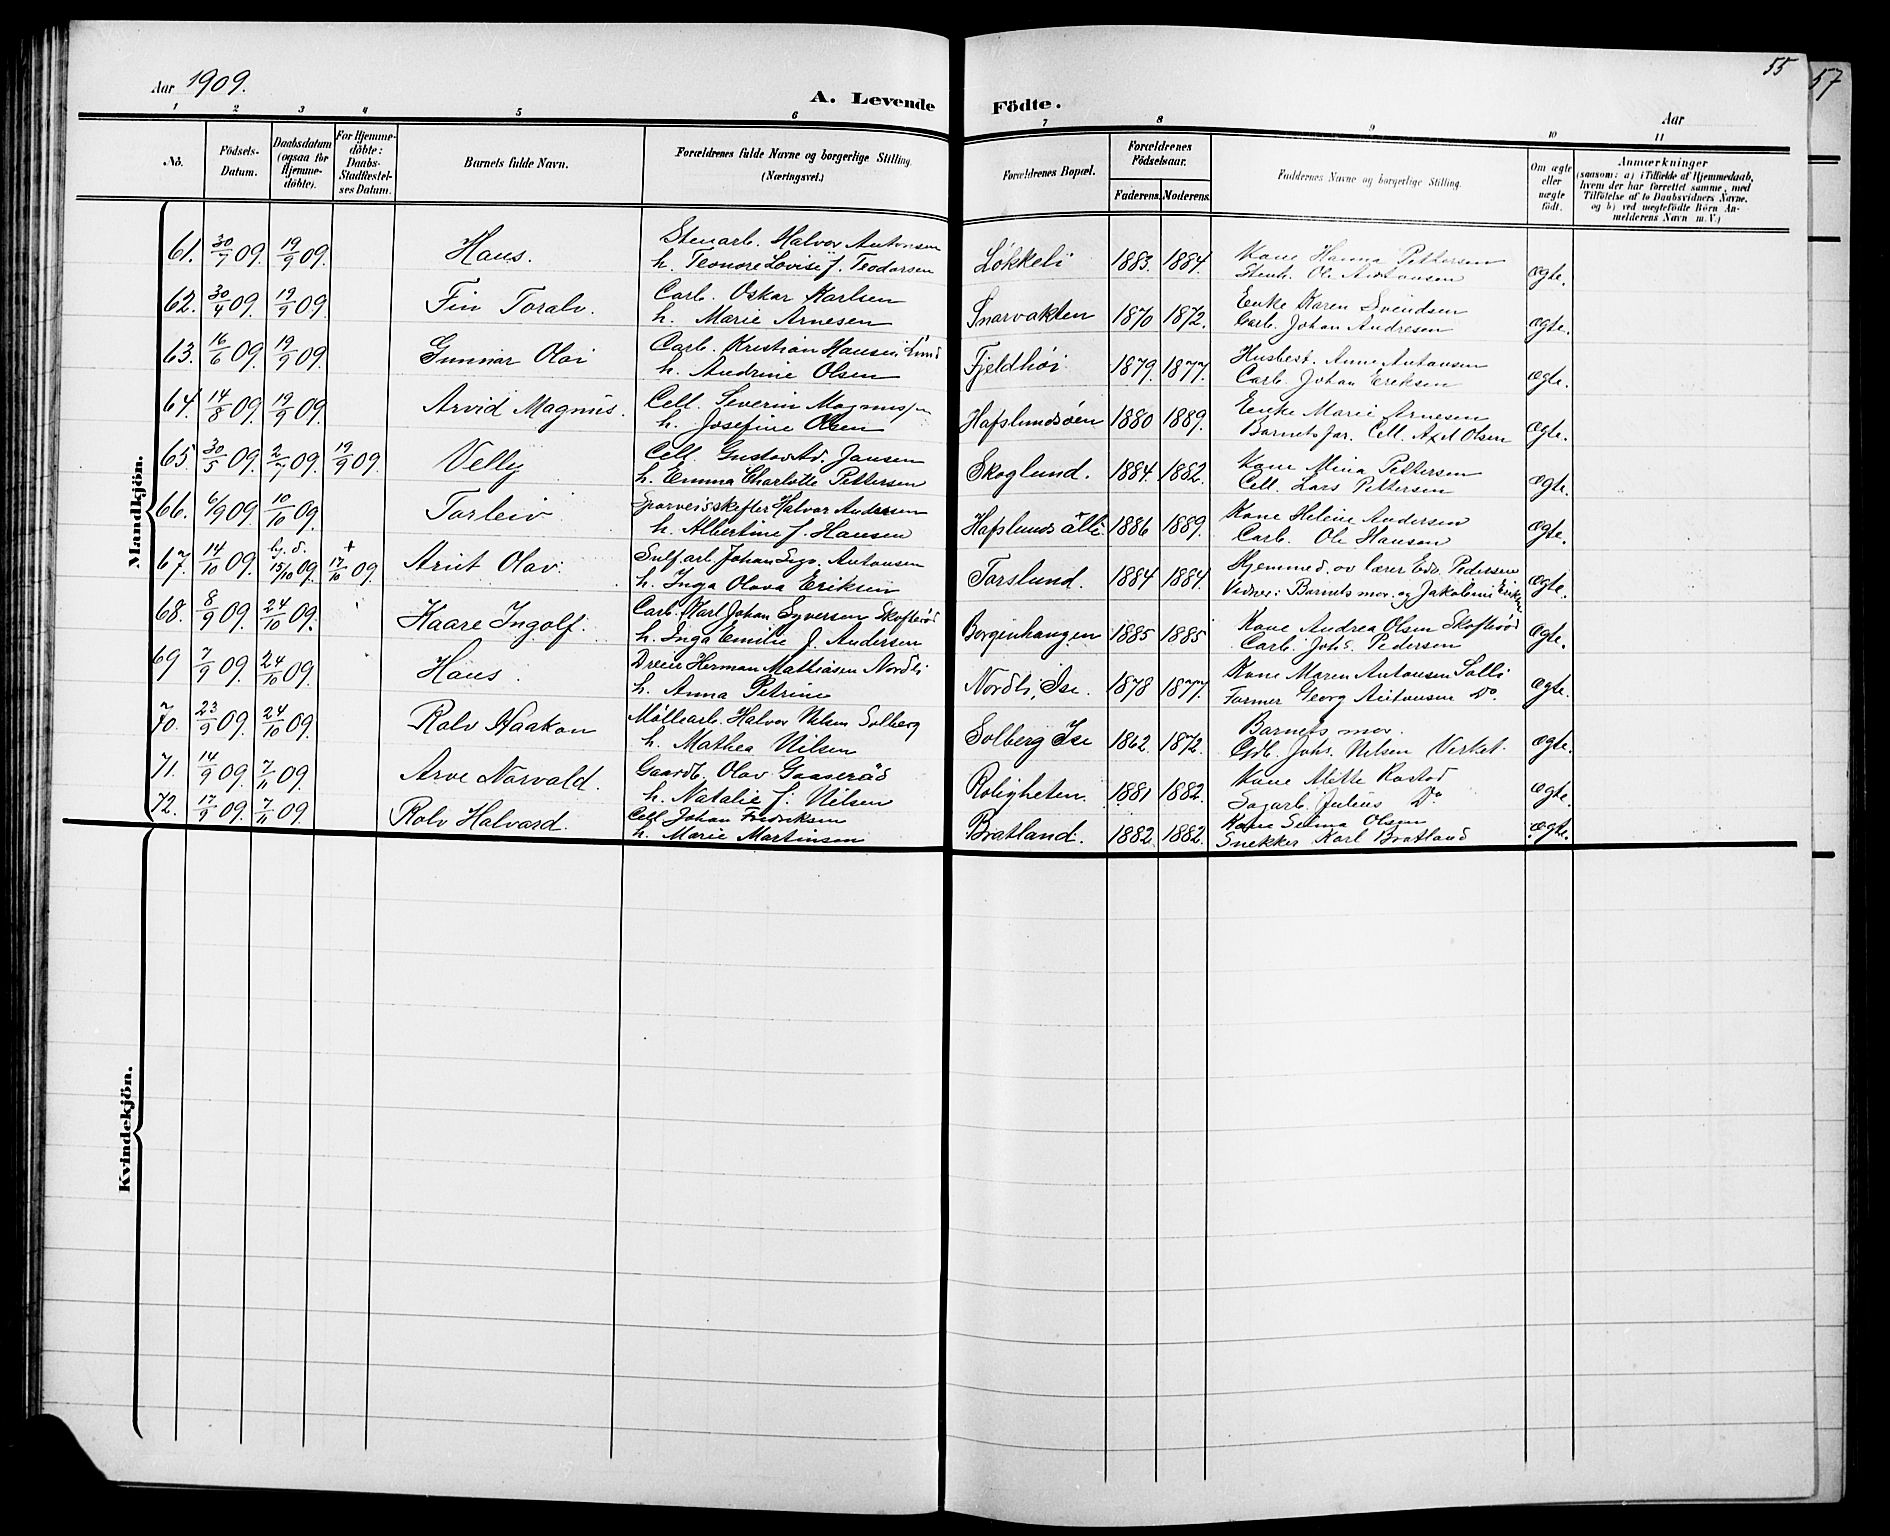 55
57
Aar 1909.
A. Levende Födte.
Aar
1 2 3 4 5 6 7 8 9 10 11
No. Födsels-Datum. Daabsdatum (ogsaa for Hjemme-döbte). For Hjemme-döbte: Daabs-Stadfæstel-ses Datum. Barnets fulde Navn. Forældrenes fulde Navne og borgerlige Stilling. (Næringsvei.) Forældrenes Bopæl. Forældrenes Födselsaar. Faderens. Moderens. Faddernes Navne og borgerlige Stilling. Om ægte eller uægte födt. Anmærkninger (saasom: a) i Tilfælde af Hjemmedaab, hvem der har forrettet samme, med Tilföielse af to Daabsvidners Navne. og b) ved uægtefödte Börn An-melderens Navn m. V.)
Mandkjön.
61. 30/7 09. 19/9 09. Hans. Stenarb. Halvor Antonsen Løkkeli 1883. 1884. Kone Hanna Pettersen ægte.
h. Teonore Lovise f. Teodorsen Stenh. Ole Antonsen
62. 30/4 09. 19/9 09. Fin Toralv. Carb. Oskar Karlsen Snarvakten 1870 1872. Enke Karen Svendsen ægte.
h. Marie Arnesen Carb. Johan Andresen
63. 16/6 09. 19/9 09. Gunnar Olai Carb. Kristian Hansen Lund Fjeldhøi 1879. 1877. Husbest. Anne Antonsen ægte.
h. Andrine Olsen Carb. Johan Eriksen
64. 14/8 09. 19/9 09. Arvid Magnus. Cell. Severin Magnussen Hafslundsøen 1880 1889. Enke Marie Arnesen ægte.
h. Josefine Olsen Barnets far. Cell. Axel Olsen
65. 30/5 09. 2/7 09. 19/9 09. Velly Cell. Gustav Ad. Jansen Skoglund. 1884. 1882. Kone Mina Pettersen ægte.
h. Emma Charlotte Pettersen Cell. Lars Pettersen
66. 6/9 09 10/10 09. Torleiv Sporveisskifter Halvor Andersen Hafslunds alle 1886 1889. Kone Helene Andersen ægte.
h. Albertine f. Hansen Carb. Ole Hansen
67. 14/10 09. hj. d. 15/10 09. + 17/10 09. Arnt Olav. Sulf. arb. Johan Sig. Antonsen Torslund. 1884 1884. Hjemmed. av lærer Edv. Pedersen ægte.
h. Inga Olava Eriksen Vidner: Barnets mor. og Jakobine Eriksen
68. 8/9 09. 24/10 09. Kaare Ingolf. Carb. Karl Johan Syversen Skofterød Borgenhaugen 1885 1885 Kone Andrea Olsen Skofterød ægte.
h. Inga Emilie J. Andersen Carb. Johs. Pedersen
69 7/9 09. 24/10 09. Hans. Dreier Herman Mathiasen Nordli Nordli, Ise. 1878 1877. Kone Maren Antonsen Solli ægte.
h. Anna Petrine Former Georg Antonsen Do
70. 23/9 09. 24/10 09. Rolv Haakon Møllearb. Halvor Nilsen Solberg Solberg Ise 1862. 1872. Barnets mor. ægte.
h. Mathea Nilsen Gdb. Johs. Nilsen Verket.
71. 14/9 09. 7/11 09. Arve Norvald. Gaardb. Olav Gaaserød Roligheten. 1881 1882. Kone Mitte Rostad ægte.
h. Natalie f. Nilsen Sagarb. Julius Do
72. 17/9 09. 7/11 09. Rolv Halvard. Cell. Johan Fredriksen Bratland. 1882. 1882. Kone Selma Olsen ægte.
h. Marie Martinsen Snekker Karl Bratland
Kvindekjön.